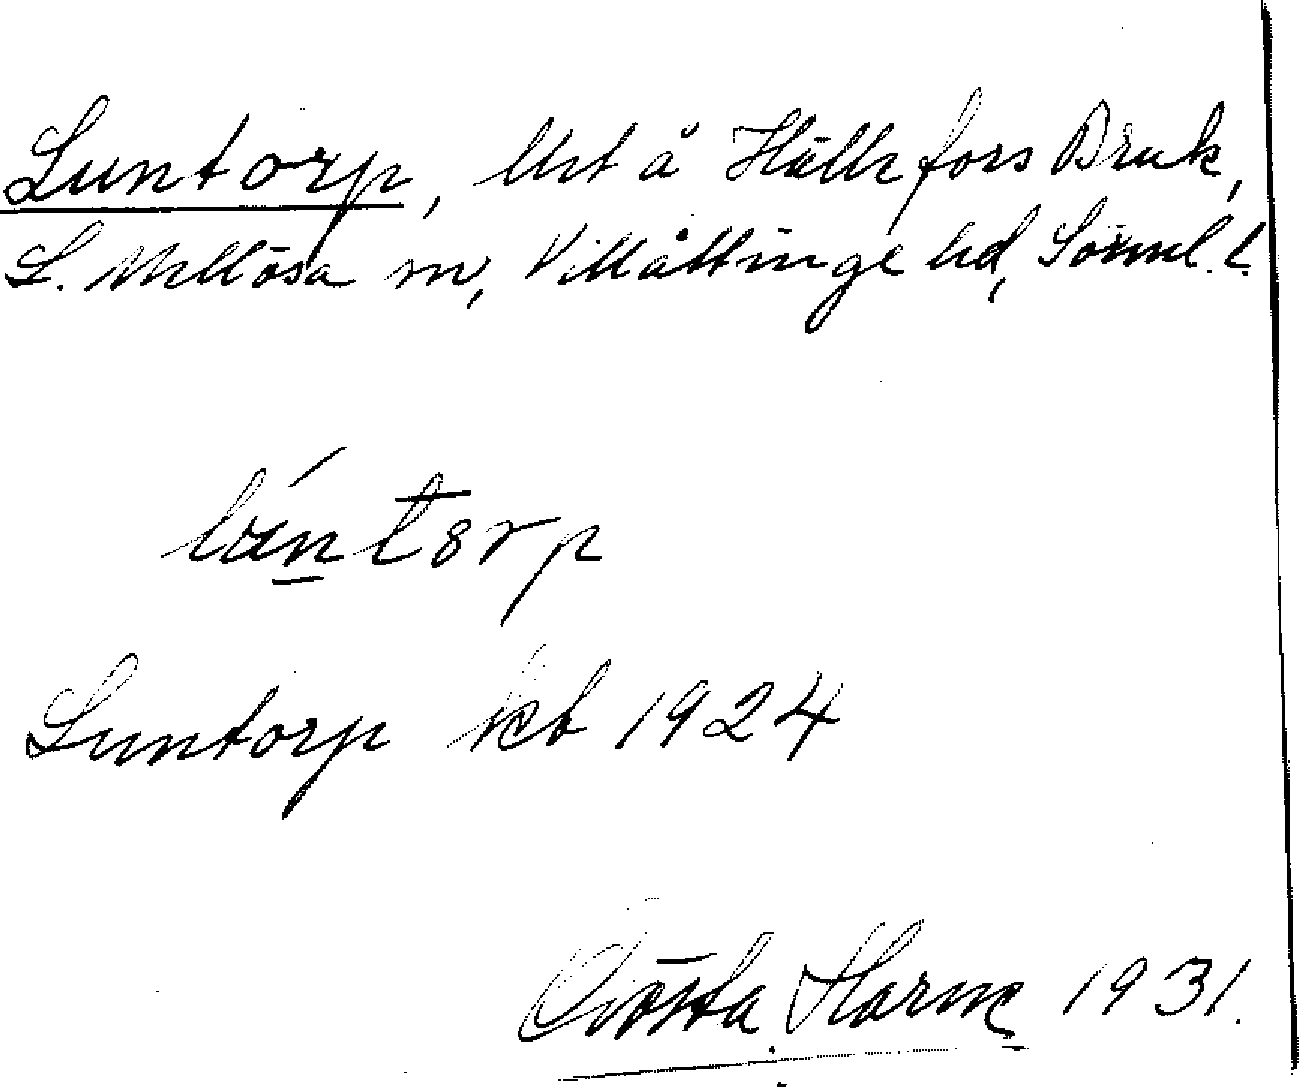 Luntorp, lht å Hällefors Bruk,
L. Mellösa sn, Villåttinge hd, Sörml. l.
lùntorp
Luntorp kb 1924
Gösta 1931.